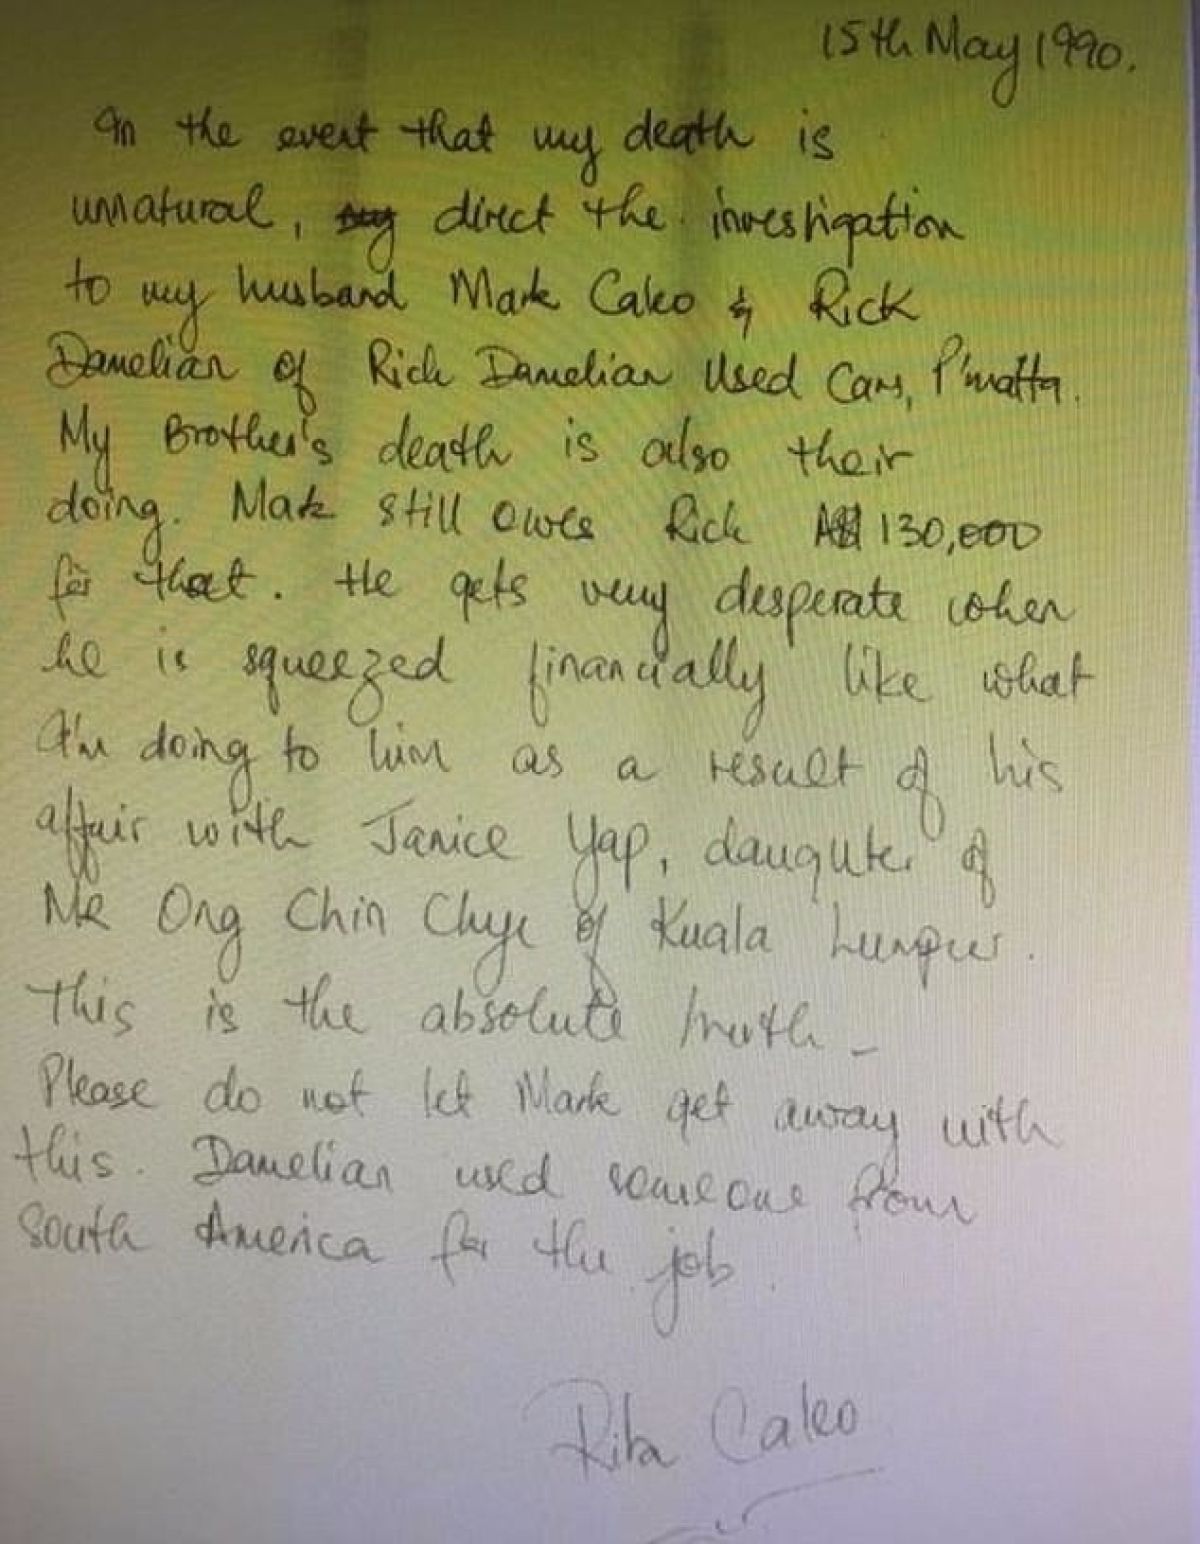 15th May 1990.
In the event that my death is
unnatural, my direct the investigation
to my husband Mark Caleo & Rick
Damelian of Rick Damelian Used Cars, P'matta.
My Brother's death is also their
doing. Mark still owes Rick A$130,000
for that. He gets very desperate when
he is squeezed financially like what
I'm doing to him as a result of his
affair with Janice Yap, daughter of
Mr Ong Chin Chye of Kuala Lumpur.
This is the absolute truth -
Please do not let Mark get away with
this. Damelian used someone from
South America for the job.
Rita Caleo